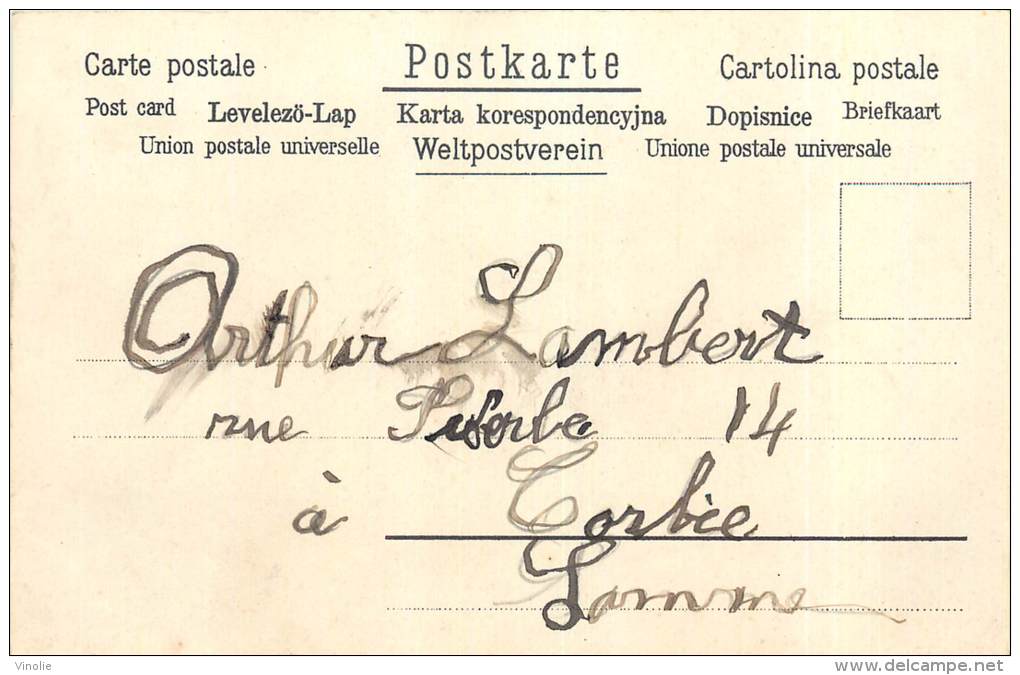 Carte postale Postkarte Cartolina postale
Post card Levelező-Lap Karta korespondencyjna Dopisnice Briefkaart
Union postale universelle Weltpostverein Unione postale universale
Arthur Lambert
rue 14
à Corbie
Somme
Vinolie delcampe.net